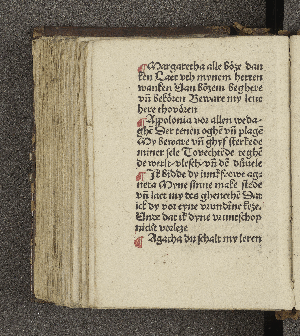 ¶ Margaretha alle böze dan
ken Laet vth mynem herten
wanken Van bözem beghere
vn̄ bekören Beware my leue
here thovören
¶ Appolonia vor allen
ghē Der tenen oghē vn̄ plagē
My beware vn̄ ghyf sterkede
miner sele Tovechtēde teghē
de werlt vlesch vn̄ dē düuele
¶ Ik bidde dy iunkfrowe ag
neta Myne sinne make stede
vn̄ laet my des ghenethē Dat
ick dy vor eyne vrundine keze.
Vnde dat ik dyne vruntschop
nicht vorleze
¶ Agatha du schalt my leren